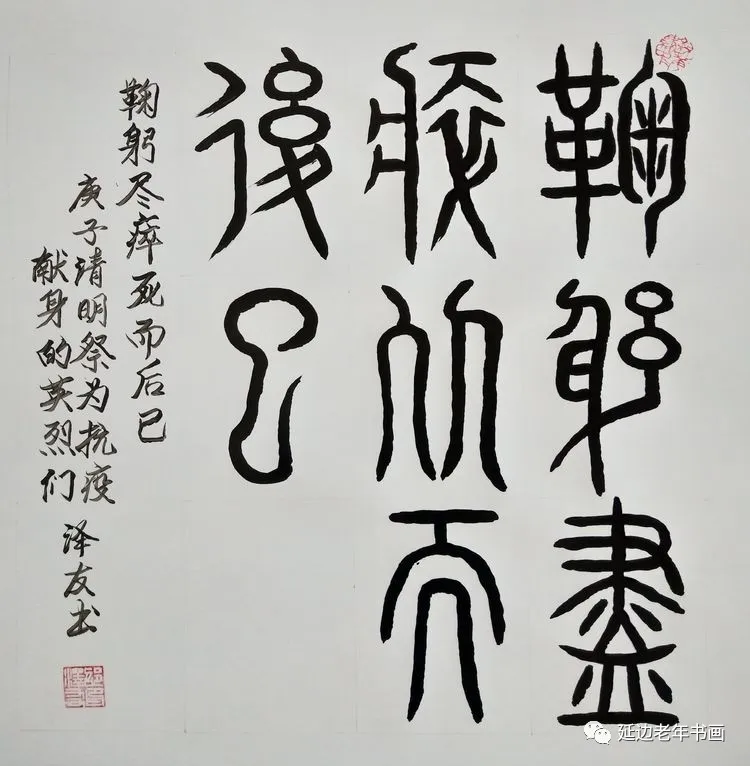 鞠躬盡
瘁死而
後已
鞠躬尽瘁死而后已
庚子清明祭为抗疫
献身的英烈们
泽友书
延边老年书画